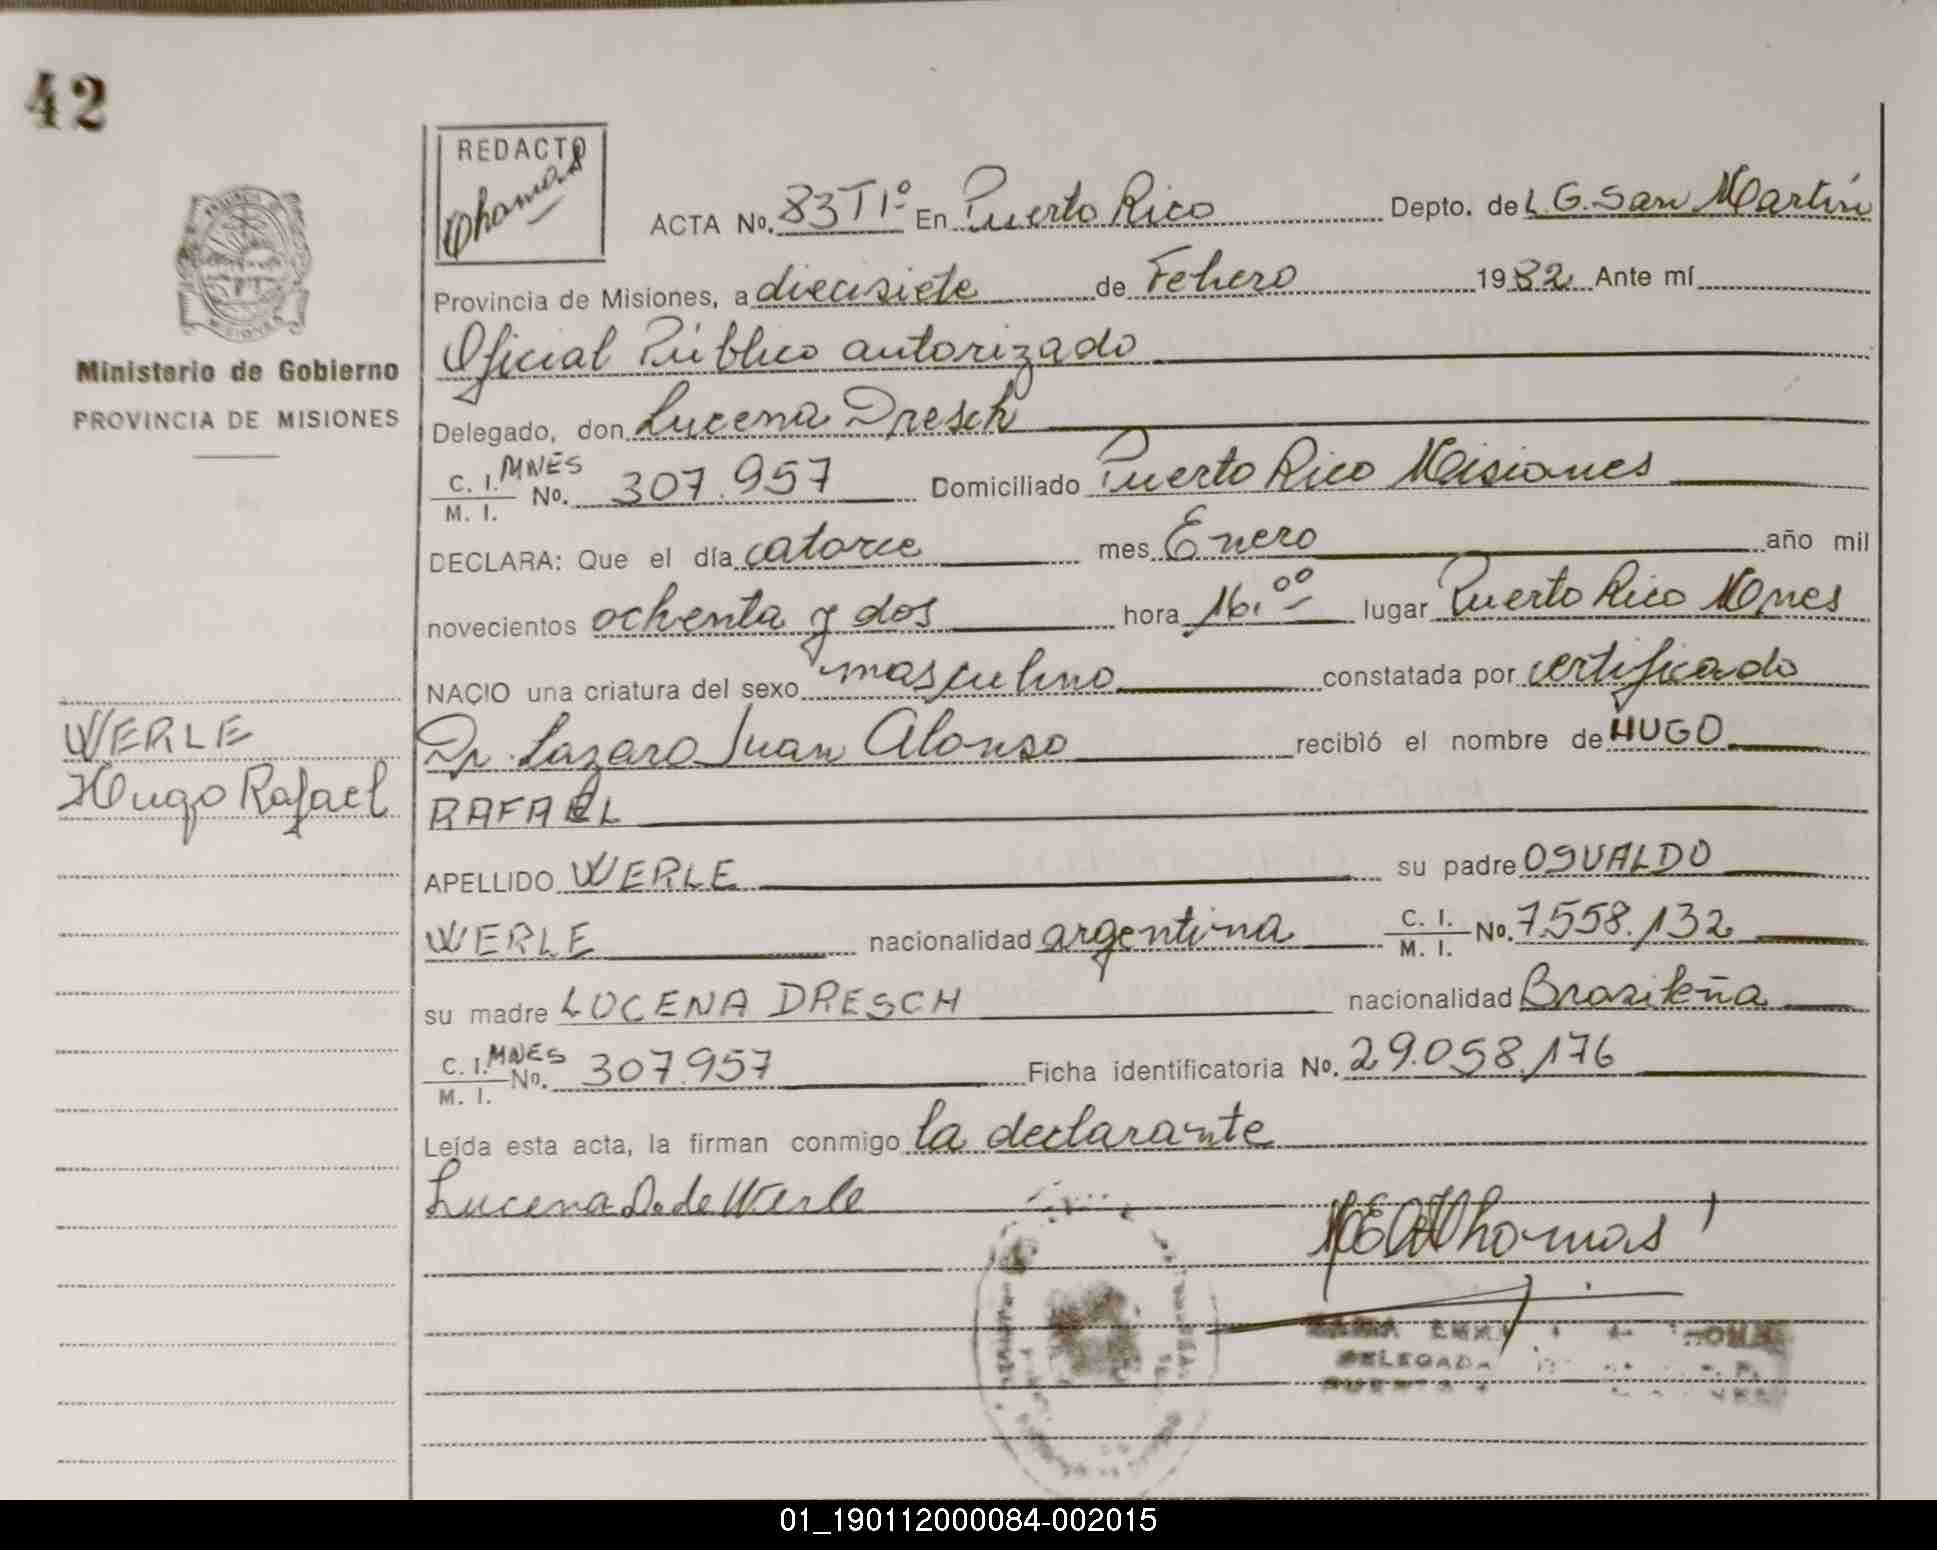 42
REDACTO
Thomas
ACTA No. 83 T1º En Puerto Rico Depto. de L.G. San Martín
Provincia de Misiones, a diecisiete de Febrero 1982 Ante mí
Oficial Público autorizado
Ministerio de Gobierno
PROVINCIA DE MISIONES
Delegado, don Lucena Dresch
C. I. MNES No. 307.957 Domiciliado Puerto Rico Misiones
M. I.
DECLARA: Que el día catorce mes Enero año mil
novecientos ochenta y dos hora 16.00 lugar Puerto Rico Mnes
NACIO una criatura del sexo masculino constatada por certificado
Dr. Lazaro Juan Alonso recibió el nombre de HUGO
RAFAEL
WERLE
Hugo Rafael
APELLIDO WERLE su padre OSVALDO
WERLE nacionalidad argentina C. I. No. 7.558.132
M. I.
su madre LUCENA DRESCH nacionalidad Brasileña
C. I. MNES No. 307.957 Ficha identificatoria No. 29.058.176
M. I.
Leída esta acta, la firman conmigo la declarante
Lucena D. de Werle
Thomas
DELEGADA
01_190112000084-002015